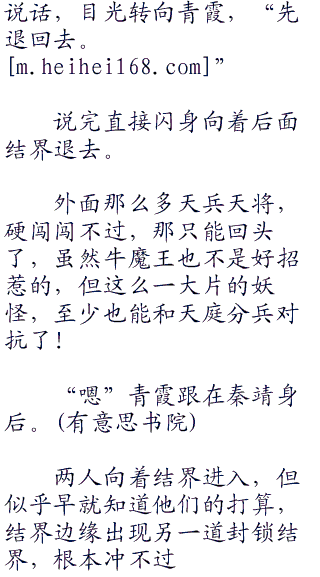 说话，目光转向青霞，“先
退回去。
[m.heihei168.com]”
说完直接闪身向着后面
结界退去。
外面那么多天兵天将，
硬闯闯不过，那只能回头
了，虽然牛魔王也不是好招
惹的，但这么一大片的妖
怪，至少也能和天庭分兵对
抗了！
“嗯”青霞跟在秦靖身
后。(有意思书院)
两人向着结界进入，但
似乎早就知道他们的打算，
结界边缘出现另一道封锁结
界，根本冲不过